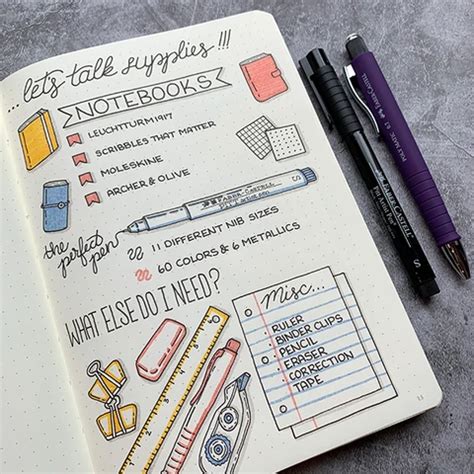 ...let's talk supplies!!!
NOTEBOOKS
LEUCHTTURM1917
SCRIBBLES THAT MATTER
MOLESKINE
ARCHER & OLIVE
the perfect pen
FABER-CASTELL
S
11 DIFFERENT NIB SIZES
60 COLORS & 6 METALLICS
WHAT ELSE DO I NEED?
Misc...
RULER
BINDER CLIPS
PENCIL
ERASER
CORRECTION
TAPE
FABER-CASTELL
S
POLY MATIC 0.7